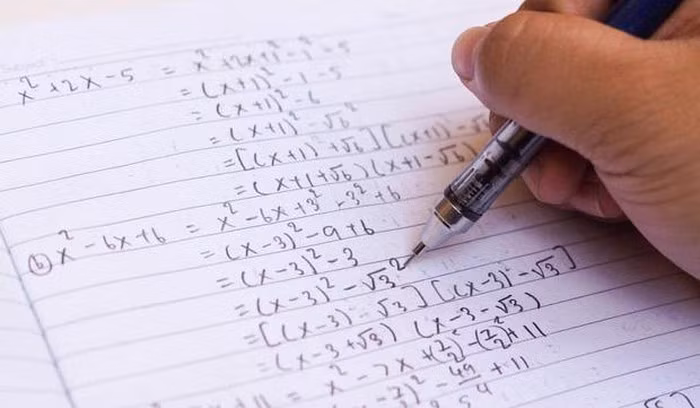 x² + 2x - 5 = x² + 2x + 1 - 1² - 5
= (x+1)² - 1 - 5
= (x+1)² - 6
= (x+1)² - √6²
= [(x+1) + √6] [(x+1) - √6]
= (x+1+√6)(x+1-√6)
(b) x² - 6x + 6 = x² - 6x + 3² - 3² + 6
= (x-3)² - 9 + 6
= (x-3)² - 3
= (x-3)² - √3²
= [(x-3) - √3] [(x-3) - √3]
= (x-3+√3) (x-3-√3)
+11 = x² - 7x + (7/2)² - (7/2)² + 11
)² - 49/4 + 11